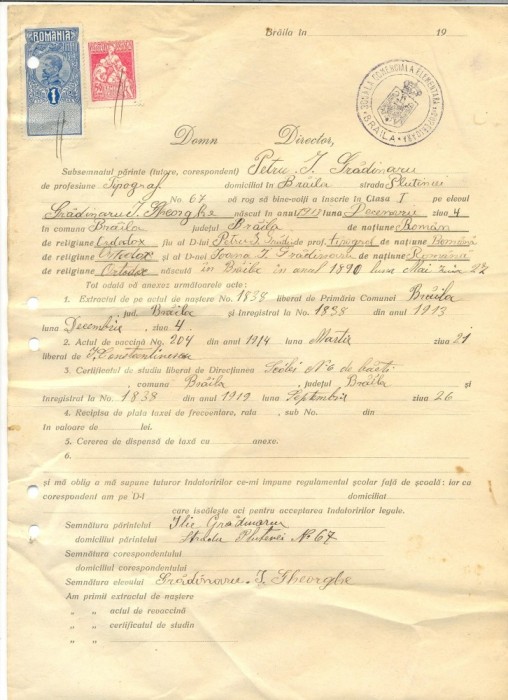 Brăila in 19
ROMANIA
1
ȘCOALA COMERCIALĂ ELEMENTARĂ
BRĂILA
Domn Director,
Subsemnatul părinte (tutore, corespondent) Petru I. Grădinaru
de profesiune Tipograf domiciliat în Brăila strada Plutinei
No 67 vă rog să bine-voiți a înscrie în Clasa I pe elevul
Grădinaru I. Gheorghe născut în anul 1913 luna Decemvrie ziua 4
în comuna Brăila județul Brăila de națiune Român
de religiune Ortodox fiu al D-lui Petru I. Grădin. de prof. tipograf de națiune Română
de religiune Ortodox și al D-nei Ioana I. Grădinaru de națiune Romînă
de religiune Ortodox născută în Brăila în anul 1890 luna Mai ziua 27
Tot odată vă anexez următoarele acte:
1. Extractul de pe actul de naștere No. 1838 liberat de Primăria Comunei Brăila
jud. Brăila și înregistrat la No. 1838 din anul 1913
luna Decembrie, ziua 4.
2. Actul de vaccină No. 204 din anul 1914 luna Martie ziua 21
liberat de Constantinescu
3. Certificatul de studiu liberat de Direcțiunea Școlei No 6 de băeți
, comuna Brăila, județul Brăila și
înregistrat la No. 1838 din anul 1919 luna Septembrie ziua 26
4. Recipisa de plata taxei de frecventare, rata , sub No. din
în valoare de lei.
5. Cererea de dispensă de taxă cu anexe.
6.
și mă oblig a mă supune tuturor îndatoririlor ce-mi impune regulamentul școlar față de școală: iar ca
corespondent am pe D-l domiciliat
care iscălește aci pentru acceptarea îndatoririlor legale.
Semnătura părintelui Ilie Grădinaru
domiciliul părintelui Strada Plutenei No 67
Semnătura corespondentului
domiciliul corespondentului
Semnătura elevului Grădinaru I. Gheorghe
Am primit extractul de naștere
" " actul de revaccină
" " certificatul de studiu